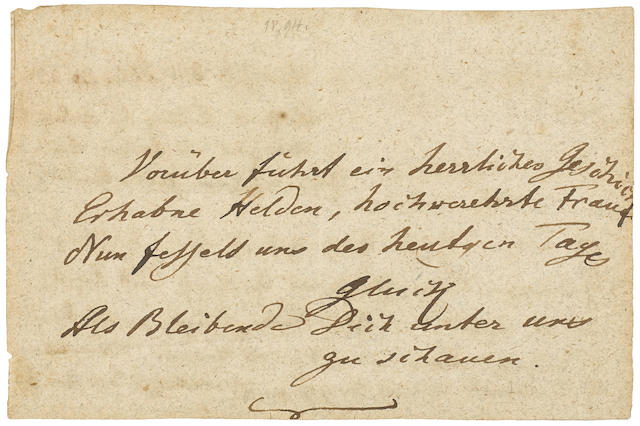 1894.
Vorüber führt ein herrliches Geschick
Erhabne Helden, hochverehrte Frauen
Nun fesselt uns des heutgen Tages
Glück
Als Bleibende Dich unter uns
zu schauen.